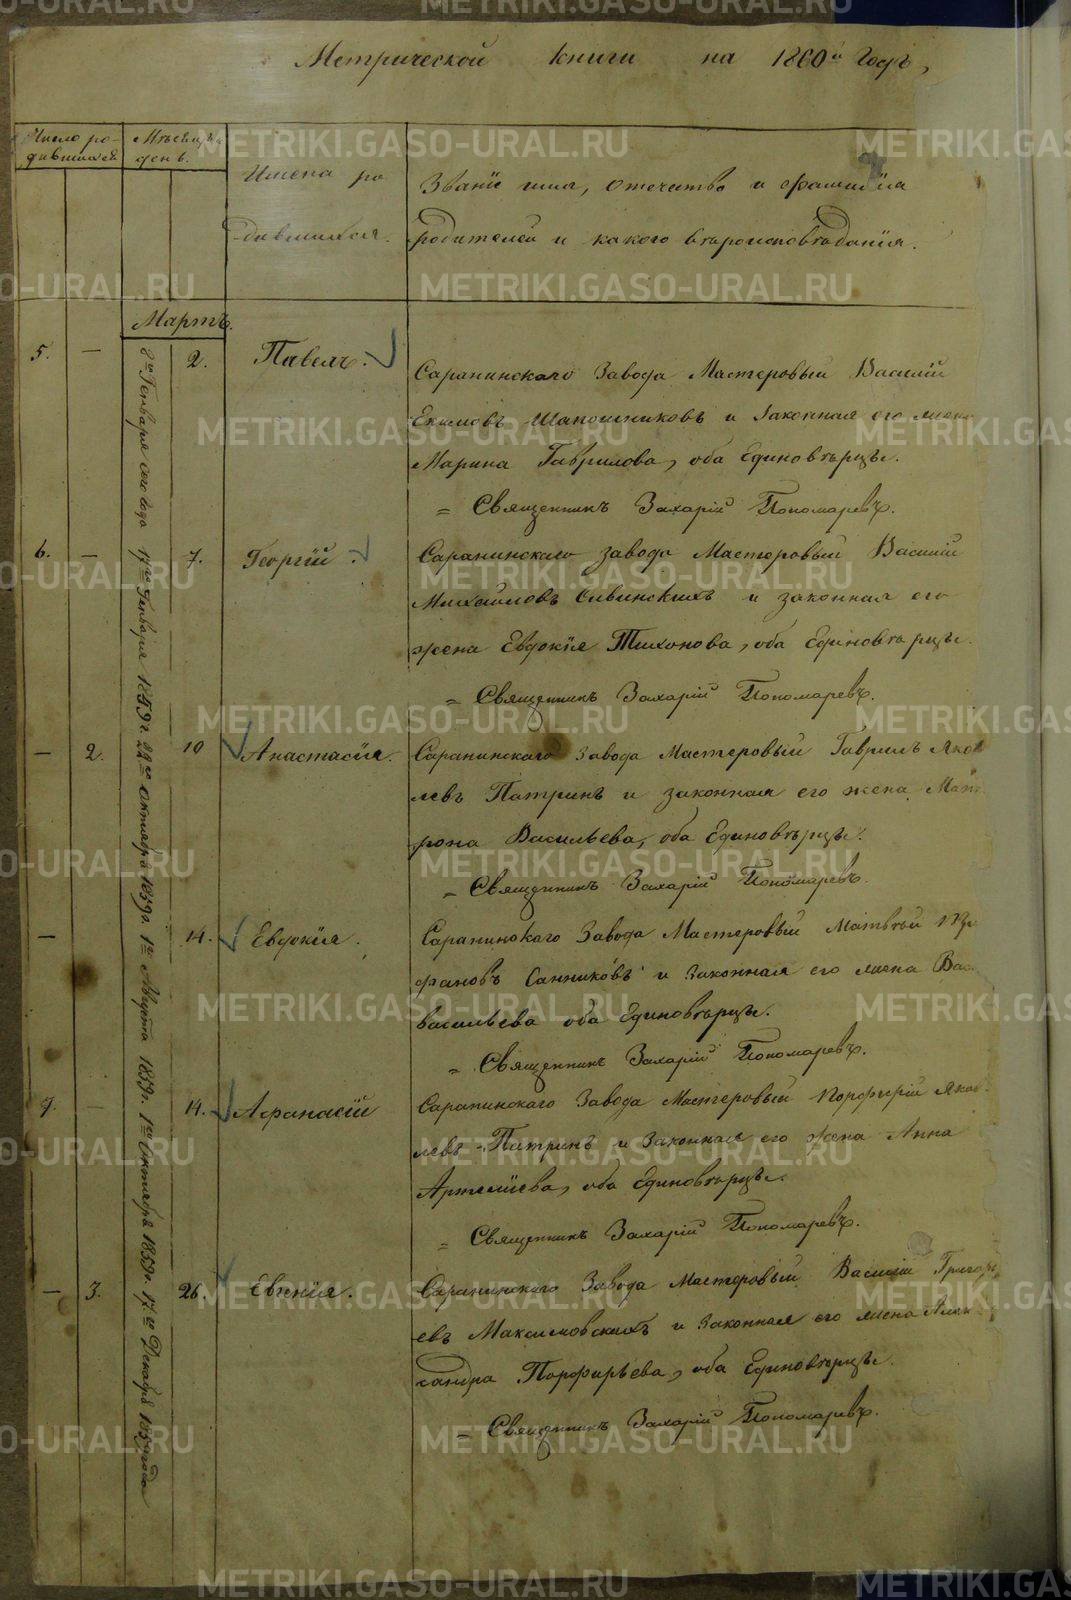 Метрической книги на 1860й Годъ,
Число ро-
дившихся
Мѣсяцъ и
день.
Имена ро
дившихся.
Званіе имя, отечество и фамилія
родителей и какого вѣроисповѣданія.
Мартъ.
5. — 2. Павелъ.
Саранинскаго Завода Мастеровый Василій
Екимовъ Шапошниковъ и Законная его жена
Марина Гаврилова, оба Единовѣрцы.
= Священникъ Захарій Пономаревъ.
6. — 7. Георгій.
Саранинскаго завода Мастеровый Василій
Михайловъ Сивинскихъ и законная его
жена Евдокія Тихонова, оба Единовѣрцы.
= Священникъ Захарій Пономаревъ.
— 2. 10 Анастасія.
Саранинскаго Завода Мастеровый Гаврилъ Яков
левъ Патринъ и законная его жена Мат
рона Васильева, оба Единовѣрцы.
= Священникъ Захарій Пономаревъ.
— 14. Евдокія.
Саранинскаго Завода Мастеровый Матвѣй
фановъ Санниковъ и Законная его жена Вас
васильева оба Единовѣрцы.
= Священникъ Захарій Пономаревъ.
7. — 14. Афанасій
Саранинскаго Завода Мастеровый Порфирій Яков
левъ Патринъ и Законная его жена Анна
Артеміева, оба Единовѣрцы.
= Священникъ Захарій Пономаревъ.
— 3. 26. Евгенія.
Саранинскаго Завода Мастеровый Василій Григорь
евъ Максимовскихъ и Законная его жена Алек
сандра Порфирьева, оба Единовѣрцы.
= Священникъ Захарій Пономаревъ.
8го Генваря сего года 17го Генваря 1859г. 22го октября 1859г. 1го Марта 1859г. 1го Октября 1859г. 17го Декабря 1859года
METRIKI.GASO-URAL.RU